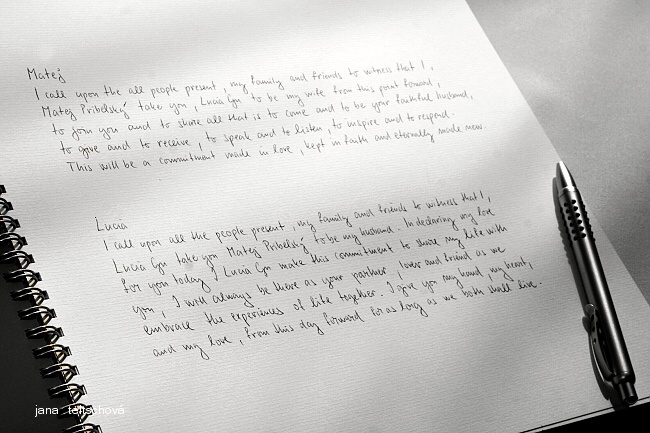 Matej
I call upon the all people present, my family and friends to witness that I,
Matej Pribelský take you, Lucia Gn to be my wife from this point forward,
to join you and to share all that is to come and to be your faithful husband,
to give and to receive, to speak and to listen, to inspire and to respond.
This will be a commitment made in love, kept in faith and eternally made new.
Lucia
I call upon all the people present, my family and friends to witness that I,
Lucia Gn take you Matej Pribelský to be my husband. In declaring my love
for you today I Lucia Gn make this commitment to share my life with
you, I will always be there as your partner, lover and friend as we
embrace the experiences of life together. I give you my hand, my heart,
and my love, from this day forward for as long as we both shall live.
jana teltschová